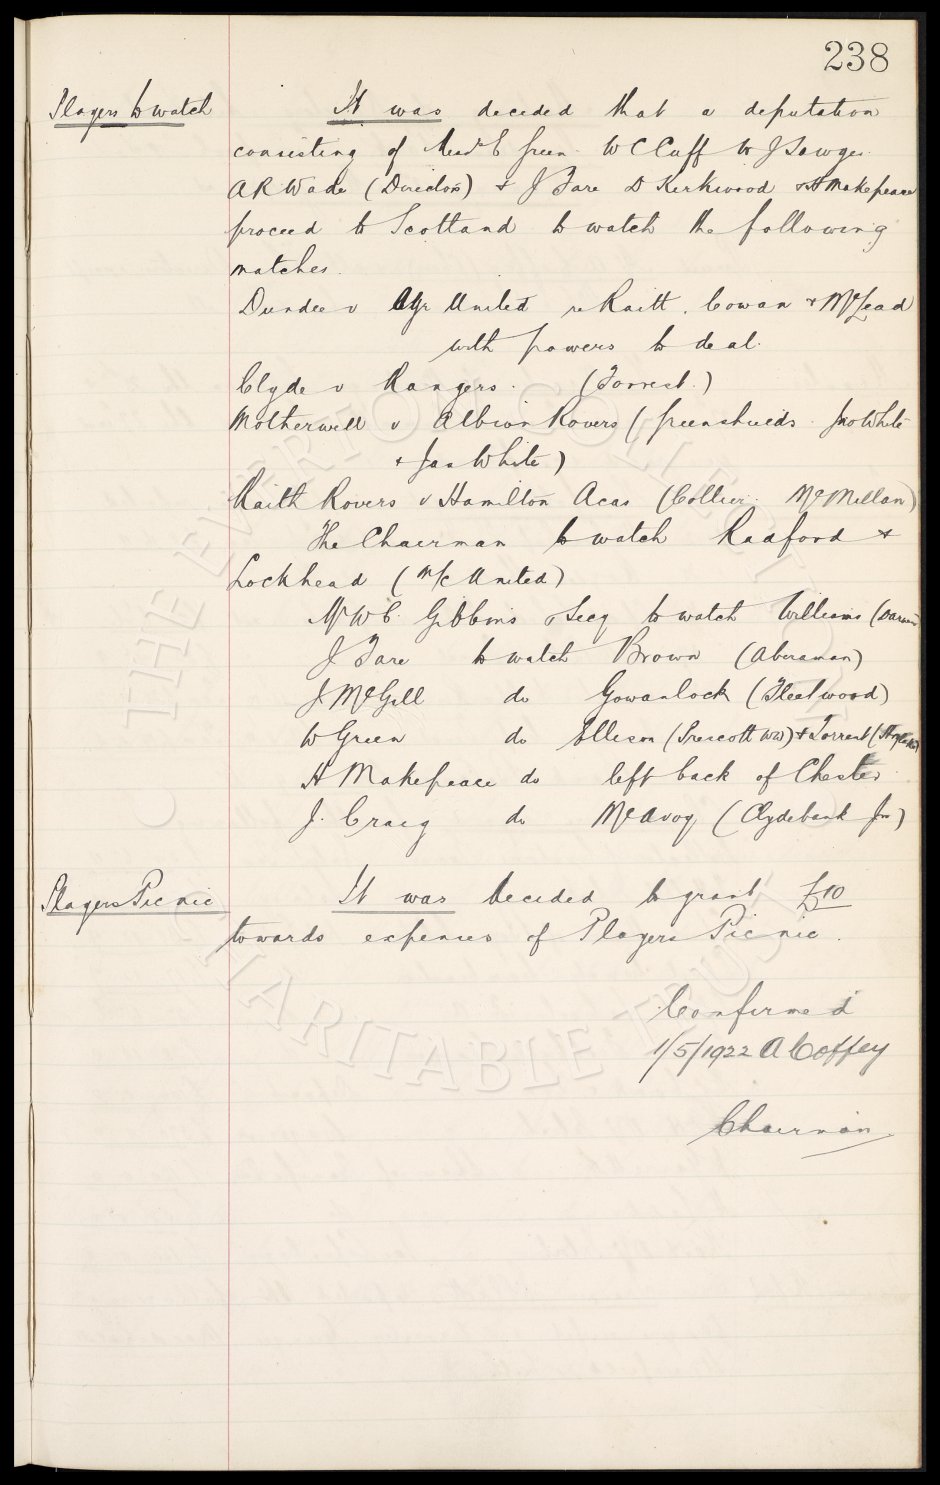 238
Players to watch
It was decided that a deputation
consisting of Messrs E Green W C Cuff W J Sawyer
A R Wade (Directors) & J Fare D Kirkwood & H Makepeace
proceed to Scotland to watch the following
matches.
Dundee v Ayr United re Raitt, Cowan & McLead
with powers to deal.
Clyde v Rangers. (Forrest.)
Motherwell v Albion Rovers (Greenshields Jno White
& Jas White)
Raith Rovers v Hamilton Acas (Collier. McMillan)
The Chairman to watch Radford &
Lockhead (M/c United)
Mr W C Gibbins & Secy to watch Williams (Darwen
J Fare to watch Brown (Aberaman)
J McGill do Gowanlock (Fleetwood)
W Green do Ellison (Prescott WW) & Torrent (
H Makepeace do left back of Chester
J. Craig do McAvoy (Clydebank Jrs)
Players Picnic
It was decided to grant £10
towards expenses of Players Picnic.
Confirmed
1/5/1922 A Coffey
Chairman
© THE EVERTON COLLECTION
CHARITABLE TRUST